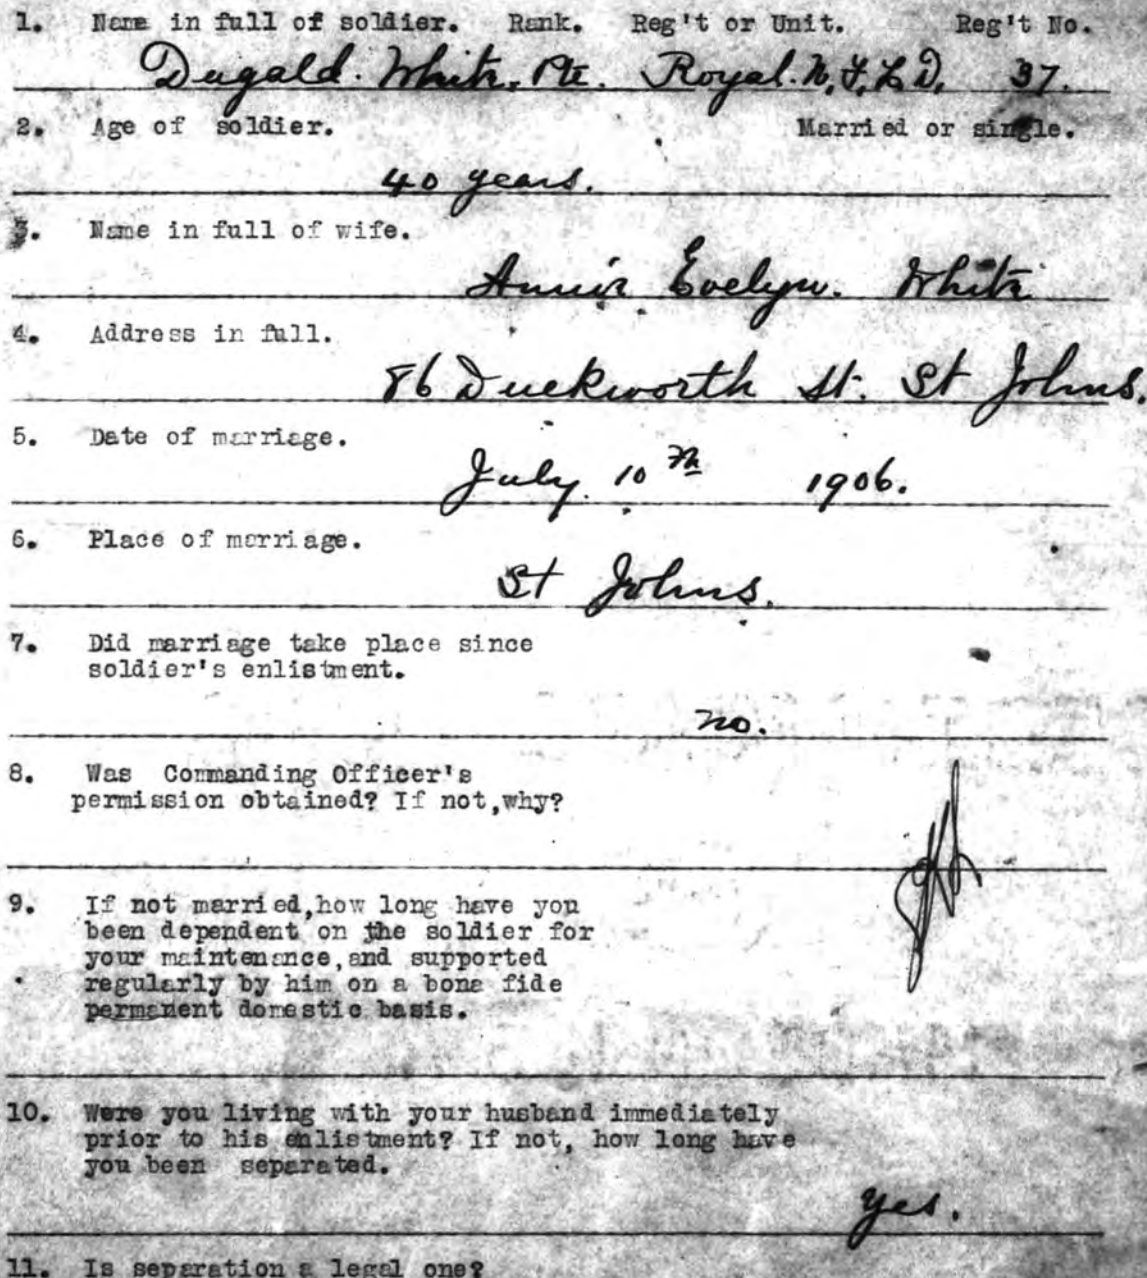 1. Name in full of soldier. Rank. Reg't or Unit. Reg't No.
Dugald. White, Pte. Royal. N,F,L,D, 37.
2. Age of soldier. Married or single.
40 years.
3. Name in full of wife.
Annie Evelyn. White
4. Address in full.
86 Duckworth St. St Johns.
5. Date of marriage.
July 10th 1906.
6. Place of marriage.
St Johns.
7. Did marriage take place since
soldier's enlistment.
no.
8. Was Commanding Officer's
permission obtained? If not,why?
9. If not married,how long have you
been dependent on the soldier for
your maintenance,and supported
regularly by him on a bona fide
permanent domestic basis.
10. Were you living with your husband immediately
prior to his enlistment? If not, how long have
you been separated.
yes.
11. Is separation a legal one?